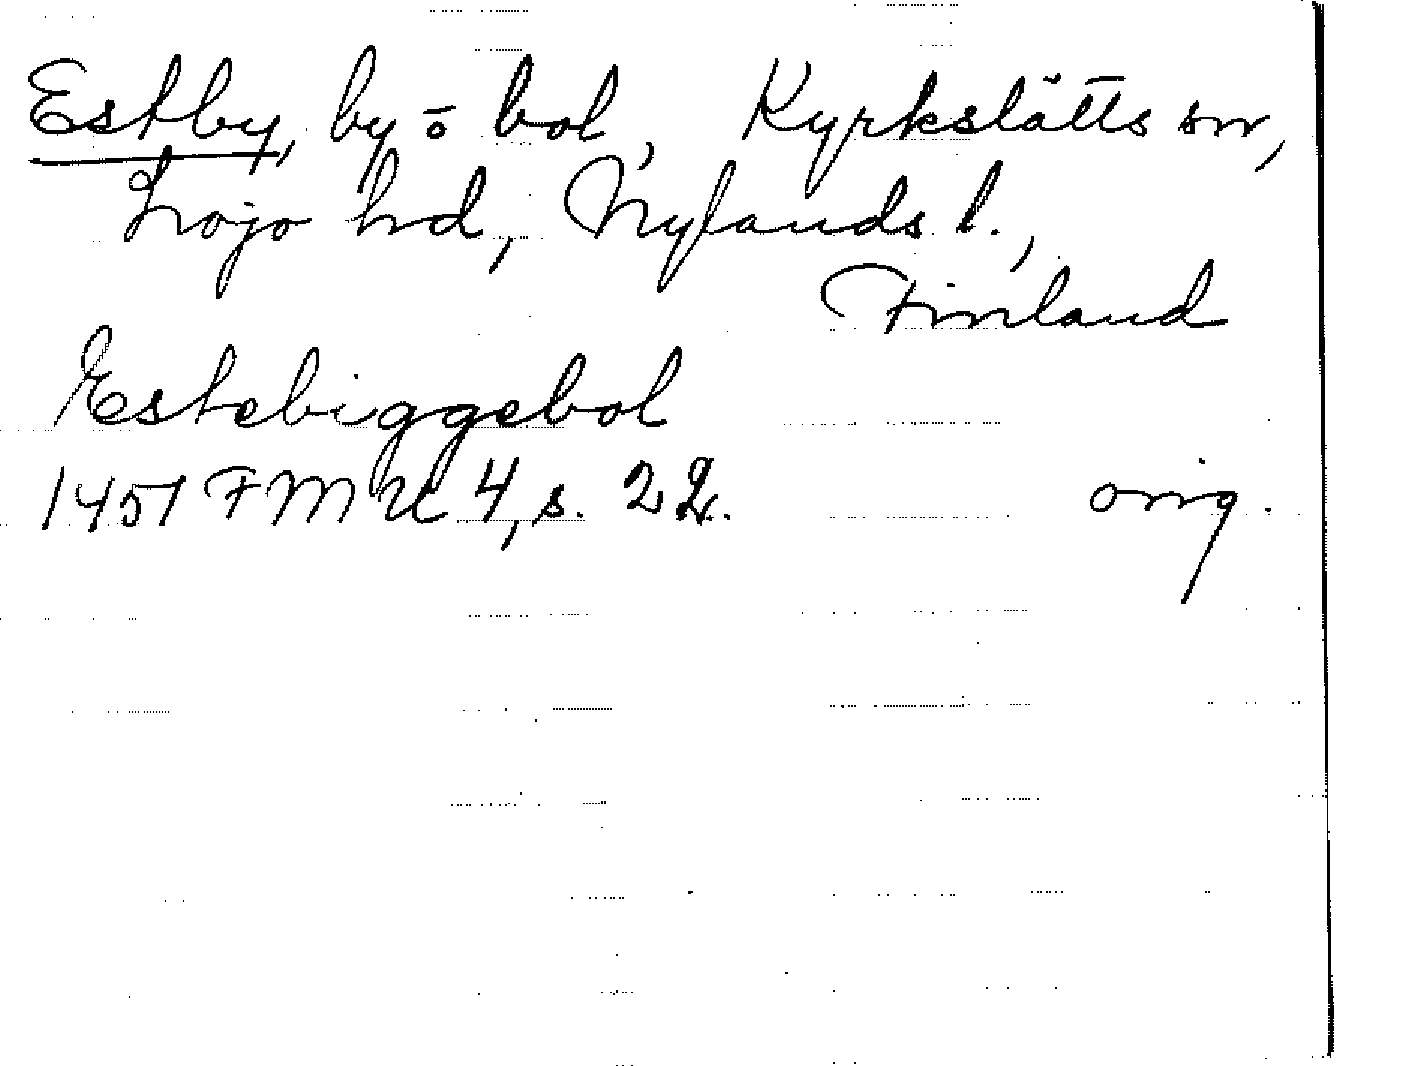 Estby, by o bol, Kyrkslätts sn,
Lojo hd, Nylands l.,
Finland
Estebiggebol
1451 FMU 4, s. 22. orig.